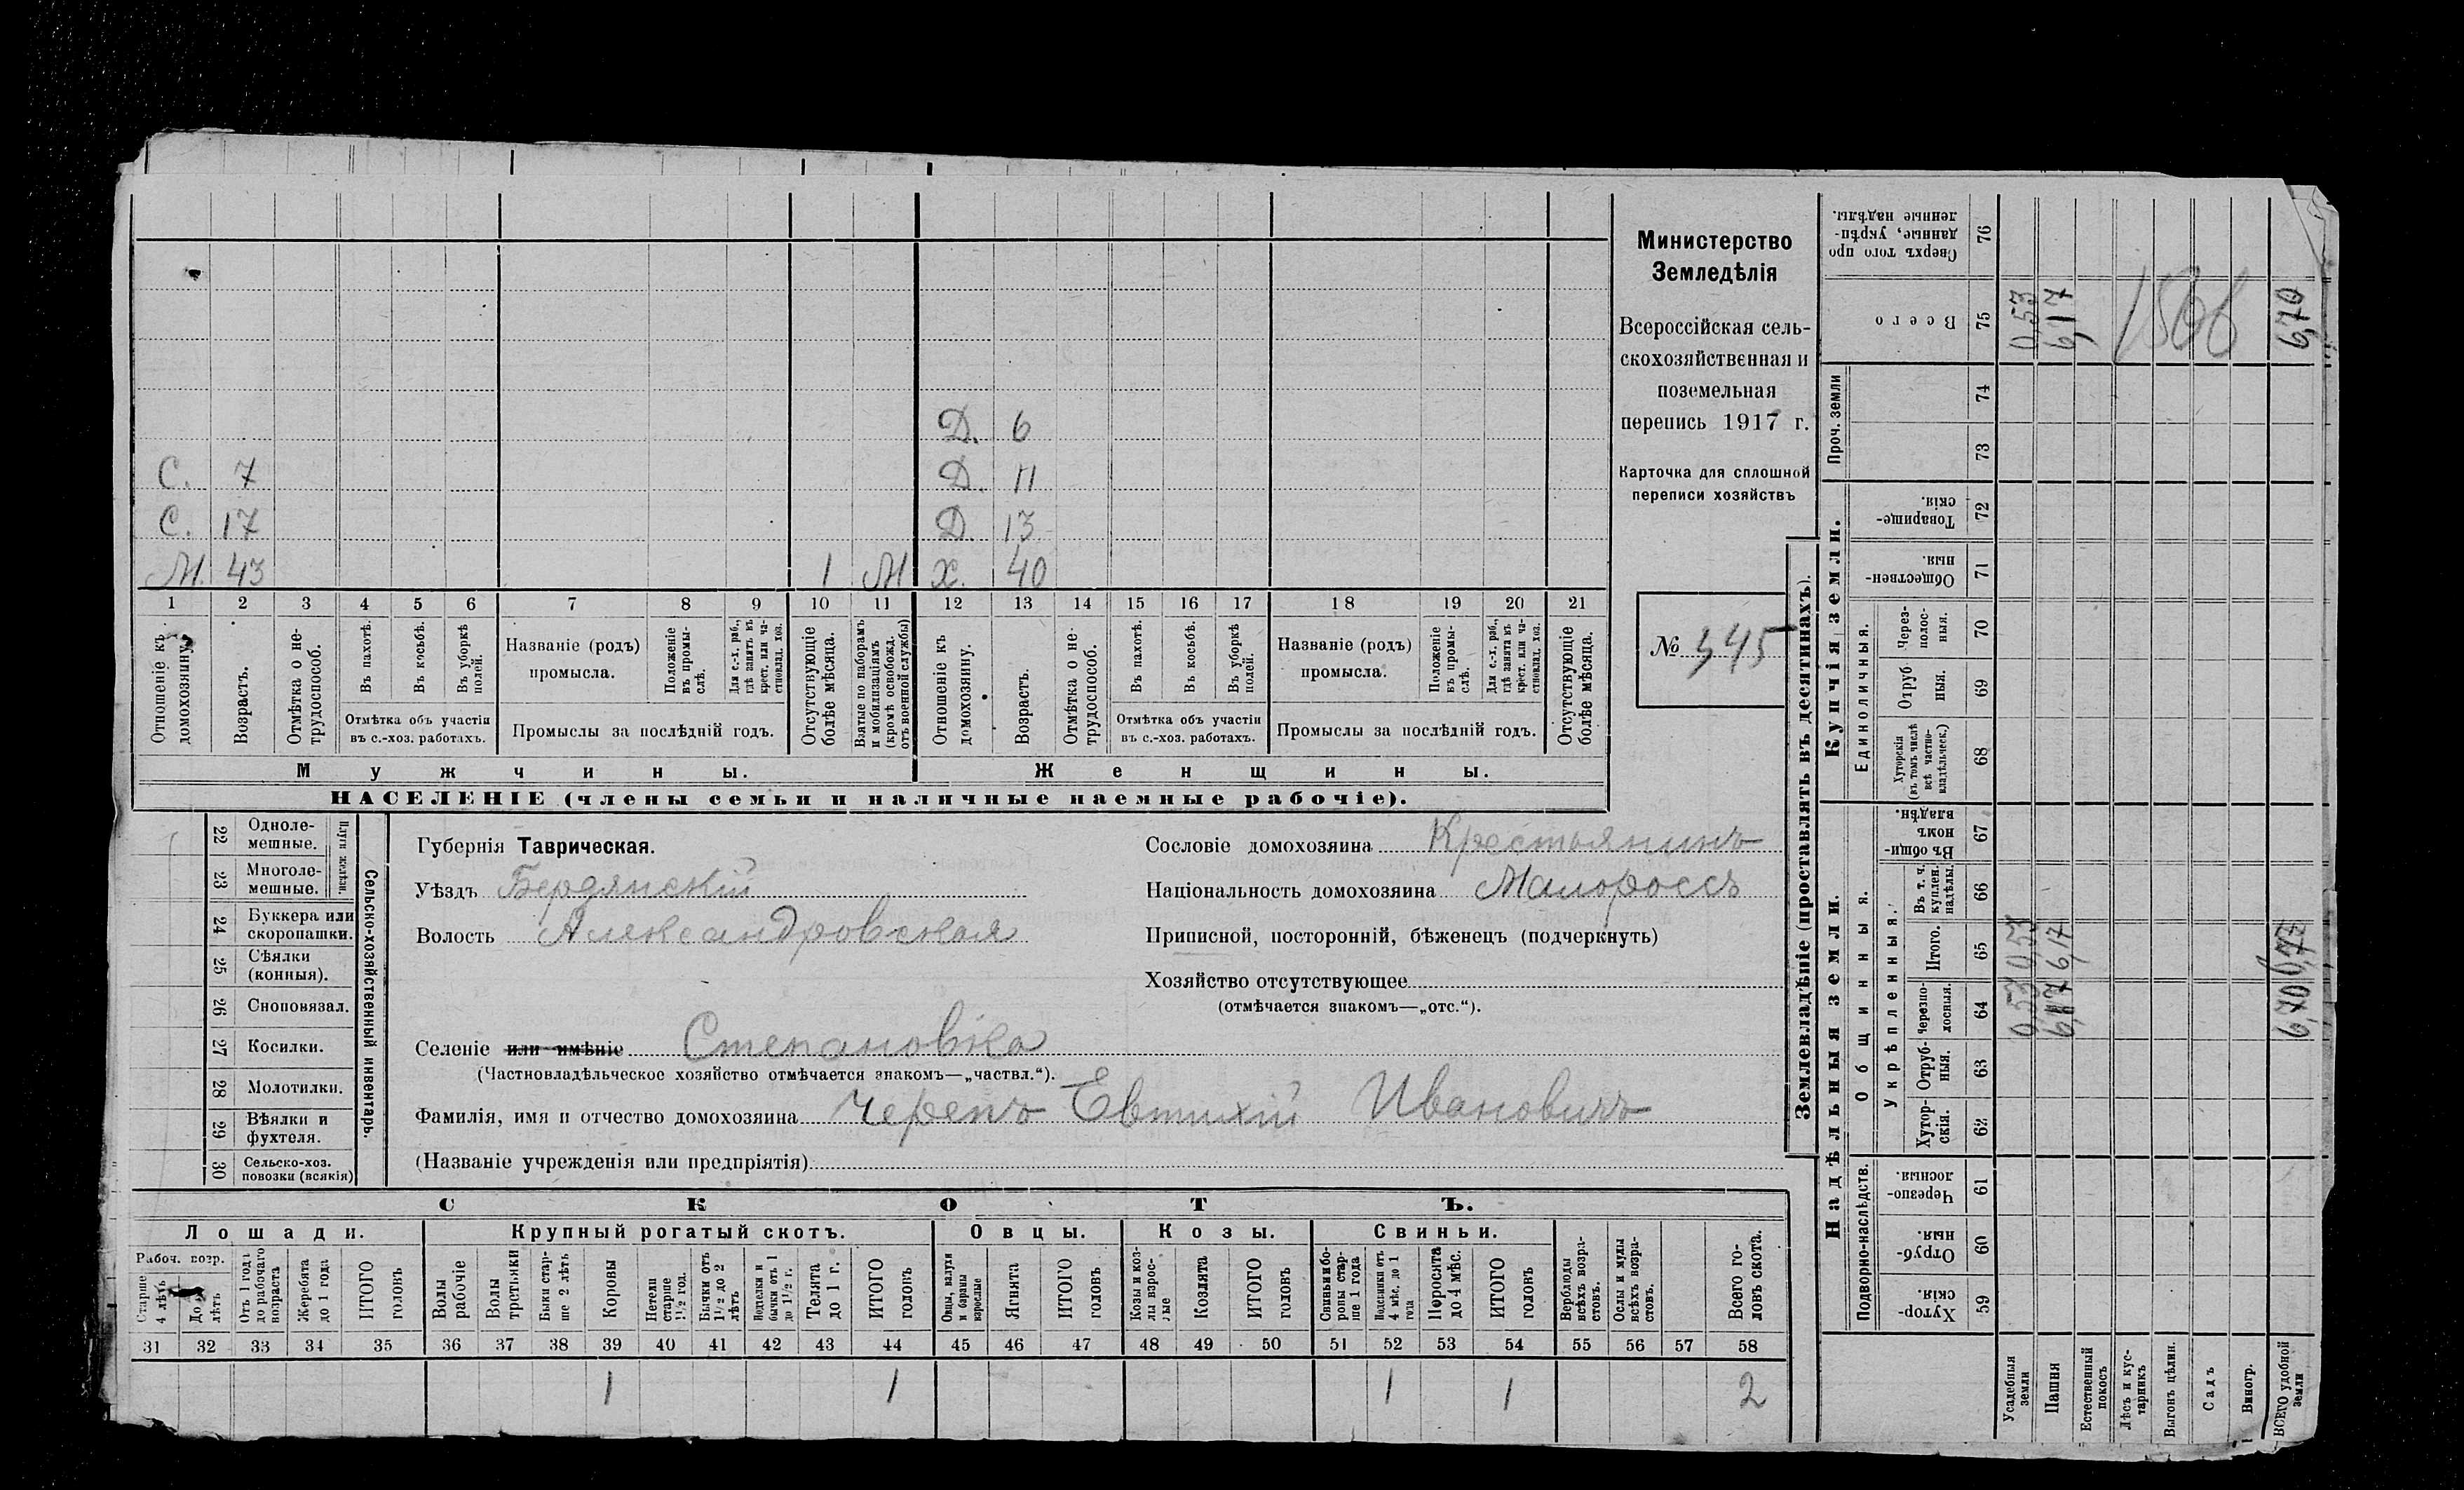 Д. 6
С. 7 Д. 11
С. 17 Д. 13
М. 43 1 М Х. 40
1 2 3 4 5 6 7 8 9 10 11 12 13 14 15 16 17 18 19 20 21
Отношеніе къ домохозяину.
Возрастъ.
Отмѣтка о не-трудоспособ.
Въ пахотѣ.
Въ косьбѣ.
Въ уборкѣ полей.
Отмѣтка объ участіи
въ с.-хоз. работахъ.
Названіе (родъ)
промысла.
Положеніе въ промы-слѣ.
Для с.-х. раб., гдѣ занятъ въ крест. или ча-стновлад. хоз.
Промыслы за послѣдній годъ.
Отсутствующіе болѣе мѣсяца.
Взятые по наборамъ и мобилизаціямъ (кромѣ освобожд. отъ военной службы)
Отношеніе къ домохозяину.
Возрастъ.
Отмѣтка о не-трудоспособ.
Въ пахотѣ.
Въ косьбѣ.
Въ уборкѣ полей.
Отмѣтка объ участіи
въ с.-хоз. работахъ.
Названіе (родъ)
промысла.
Положеніе въ промы-слѣ.
Для с.-х. раб., гдѣ занята въ крест. или ча-стновлад. хоз.
Промыслы за послѣдній годъ.
Отсутствующіе болѣе мѣсяца.
Мужчины.
Женщины.
НАСЕЛЕНІЕ (члены семьи и наличные наемные рабочіе).
Министерство
Земледѣлія
Всероссійская сель-
скохозяйственная и
поземельная
перепись 1917 г.
Карточка для сплошной
переписи хозяйствъ
№ 345
Сельско-хозяйственный инвентарь.
Плуги желѣзн.
22 Одноле-мешные.
23 Многоле-мешные.
24 Буккера или скоропашки.
25 Сѣялки (конныя).
26 Сноповязал.
27 Косилки.
28 Молотилки.
29 Вѣялки и фухтеля.
30 Сельско-хоз. повозки (всякія)
Губернія Таврическая.
Уѣздъ Бердянскій
Волость Александровская
Селеніе или имѣніе Степановка
(Частновладѣльческое хозяйство отмѣчается знакомъ—„частвл.“).
Фамилія, имя и отчество домохозяина Черепъ Евтихій Ивановичъ
(Названіе учрежденія или предпріятія)
Сословіе домохозяина Крестьянинъ
Національность домохозяина Малороссъ
Приписной, посторонній, бѣженецъ (подчеркнуть)
Хозяйство отсутствующее
(отмѣчается знакомъ—„отс.“).
СКОТЪ.
Лошади. Крупный рогатый скотъ. Овцы. Козы. Свиньи.
Рабоч. возр.
Старше 4 лѣтъ
До лѣтъ
Отъ 1 года до рабочаго возраста
Жеребята до 1 года
ИТОГО головъ
Волы рабочіе
Волы третьяки
Быки стар-ше 2 лѣтъ
Коровы
Нетели старше 1½ год.
Бычки отъ 1½ до 2 лѣтъ
Подтелки и бычки отъ 1 до 1½ г.
Телята до 1 г.
ИТОГО головъ
Овцы, валухи и бараны взрослые
Ягнята
ИТОГО головъ
Козы и коз-лы взрос-лые
Козлята
ИТОГО головъ
Свиньи и бо-ровы стар-ше 1 года
Подсвинки отъ 4 мѣс. до 1 года
Поросята до 4 мѣс.
ИТОГО головъ
Верблюды всѣхъ возра-стовъ.
Ослы и мулы всѣхъ возра-стовъ.
Всего го-ловъ скота.
31 32 33 34 35 36 37 38 39 40 41 42 43 44 45 46 47 48 49 50 51 52 53 54 55 56 57 58
1 1 1 1 2
Землевладѣніе (проставлять въ десятинахъ).
Надѣльныя земли.
Купчія земли.
Проч. земли
Подворно-наслѣдств.
Общинныя.
Укрѣпленныя.
Единоличныя.
Хутор-скія. 59
Отруб-ныя. 60
Черезпо-лосныя. 61
Хутор-скія. 62
Отруб-ныя. 63
Черезпо-лосныя. 64
Итого. 65
Въ т. ч. куплен. надѣлы. 66
Въ общи-номъ владѣн. 67
Хуторскія (въ томъ числѣ всѣ частно-владѣльческ.) 68
Отруб ныя. 69
Через-полос-ныя. 70
Обществен-ныя. 71
Товарище-скія. 72
73
74
Всего 75
Сверхъ того про данные, укрѣп-ленные надѣлы. 76
Усадебныя земли 0,53 0,53 0,53
Пашня 6,17 6,17 6,17
Естественный покосъ
Лѣсъ и кус-тарникъ
Выгонъ цѣлин.
Садъ
Виногр.
ВСЕГО удобной земли 6,70 6,70